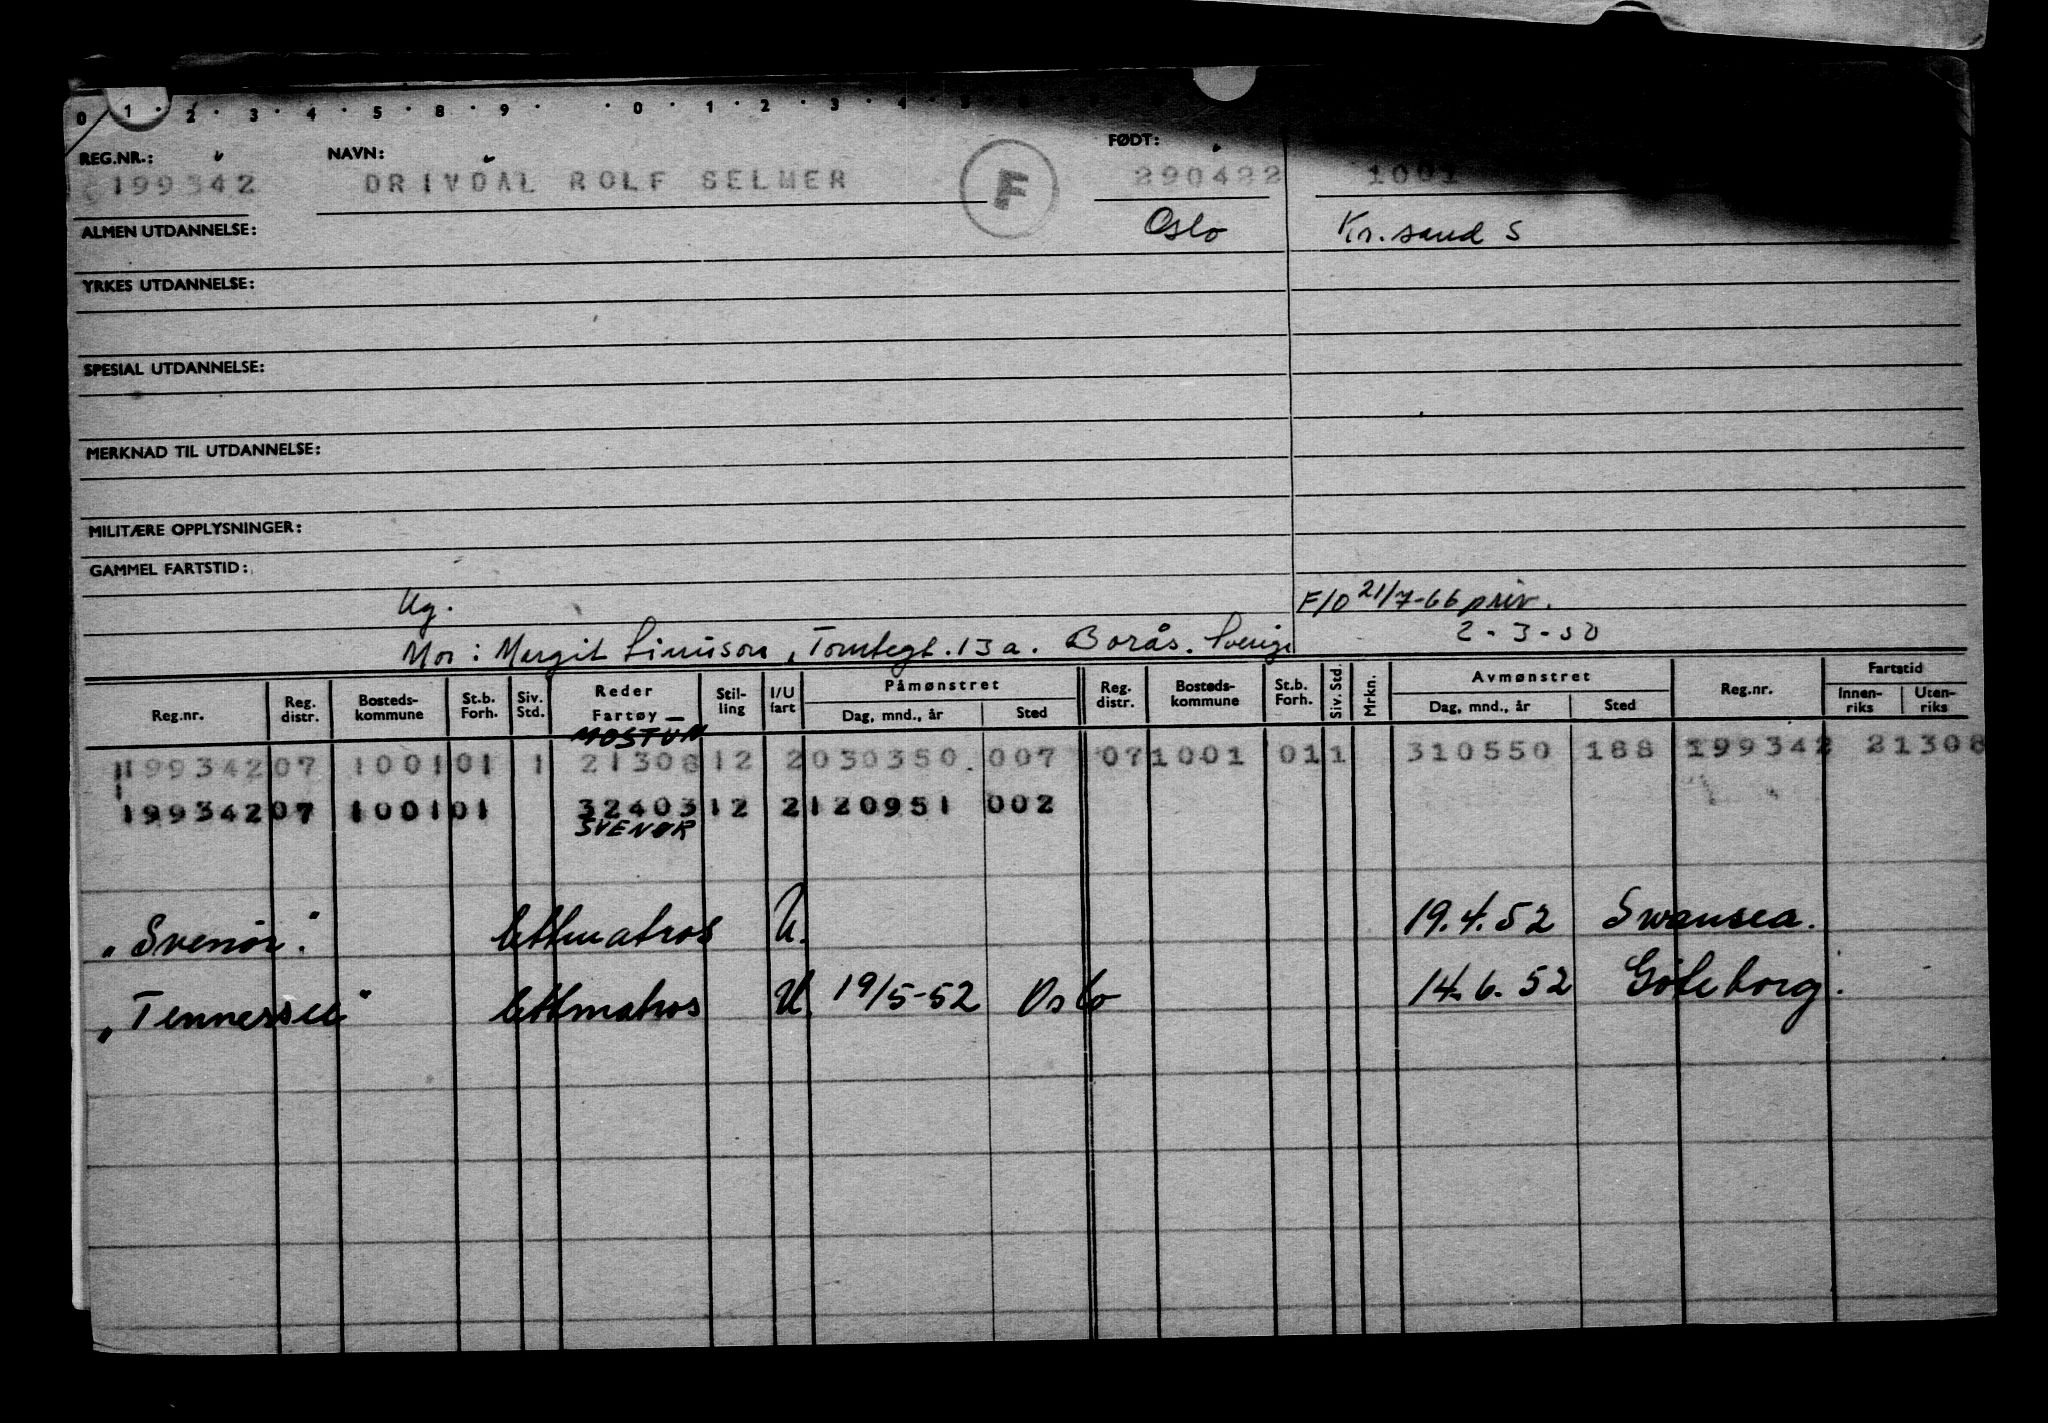 0 1 · 2 · 3 · 4 · 5 · 8 · 9 · · 0 · 1 · 2 · 3 · 4 · 5
REG.NR.: NAVN: FØDT:
199342 DRIVDAL ROLF SELMER F 290422 1001
ALMEN UTDANNELSE: Oslo Kr.sand S
YRKES UTDANNELSE:
SPESIAL UTDANNELSE:
MERKNAD TIL UTDANNELSE:
MILITÆRE OPPLYSNINGER:
GAMMEL FARTSTID:
Ug. F/O 21/7-66 priv.
2-3-50
Mor: Margit Simison, Tomtegt. 13a. Borås. Sverige
Reg.nr. Reg. distr. Bosteds-kommune St.b. Forh. Siv. Std. Reder Fartøy Stil-ling I/U fart Påmønstret Dag, mnd., år Sted Reg. distr. Bosteds-kommune St.b. Forh. Siv. Std. Mrkn. Avmønstret Dag, mnd., år Sted Reg.nr. Fartstid Innen-riks Uten-riks
MOSTUN
199342 07 1001 01 1 21308 12 2 030350 007 07 1001 01 1 310550 188 199342 21308
199342 07 1001 01 32403 12 2 120951 002
SVENØR
"Svenör" lettmatros U. 19.4.52 Swansea.
"Tennessee" lettmatros U. 19/5-52 Oslo 14.6.52 Göteborg.